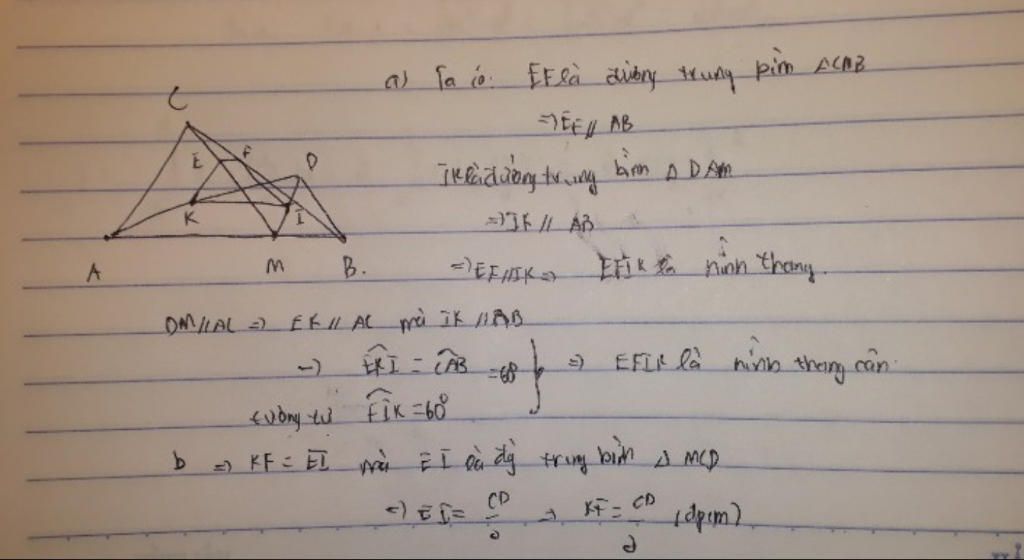 C
E F D
K I
A M B.
a) Ta có: EF là đường trung bình ΔCMB
=> EF // AB
IK là đường trung bình Δ DAM
=> IK // AB
=> EF // IK => EFIK là hình thang.
DM // AC => EK // AC mà IK // AB
=> EKI = CAB = 60 => EFIK là hình thang cân.
tương tự FIK = 60°
b => KF = EI mà EI là đg trung bình Δ MCD
=> EI = CD/2 => KF = CD/2 (đpcm)